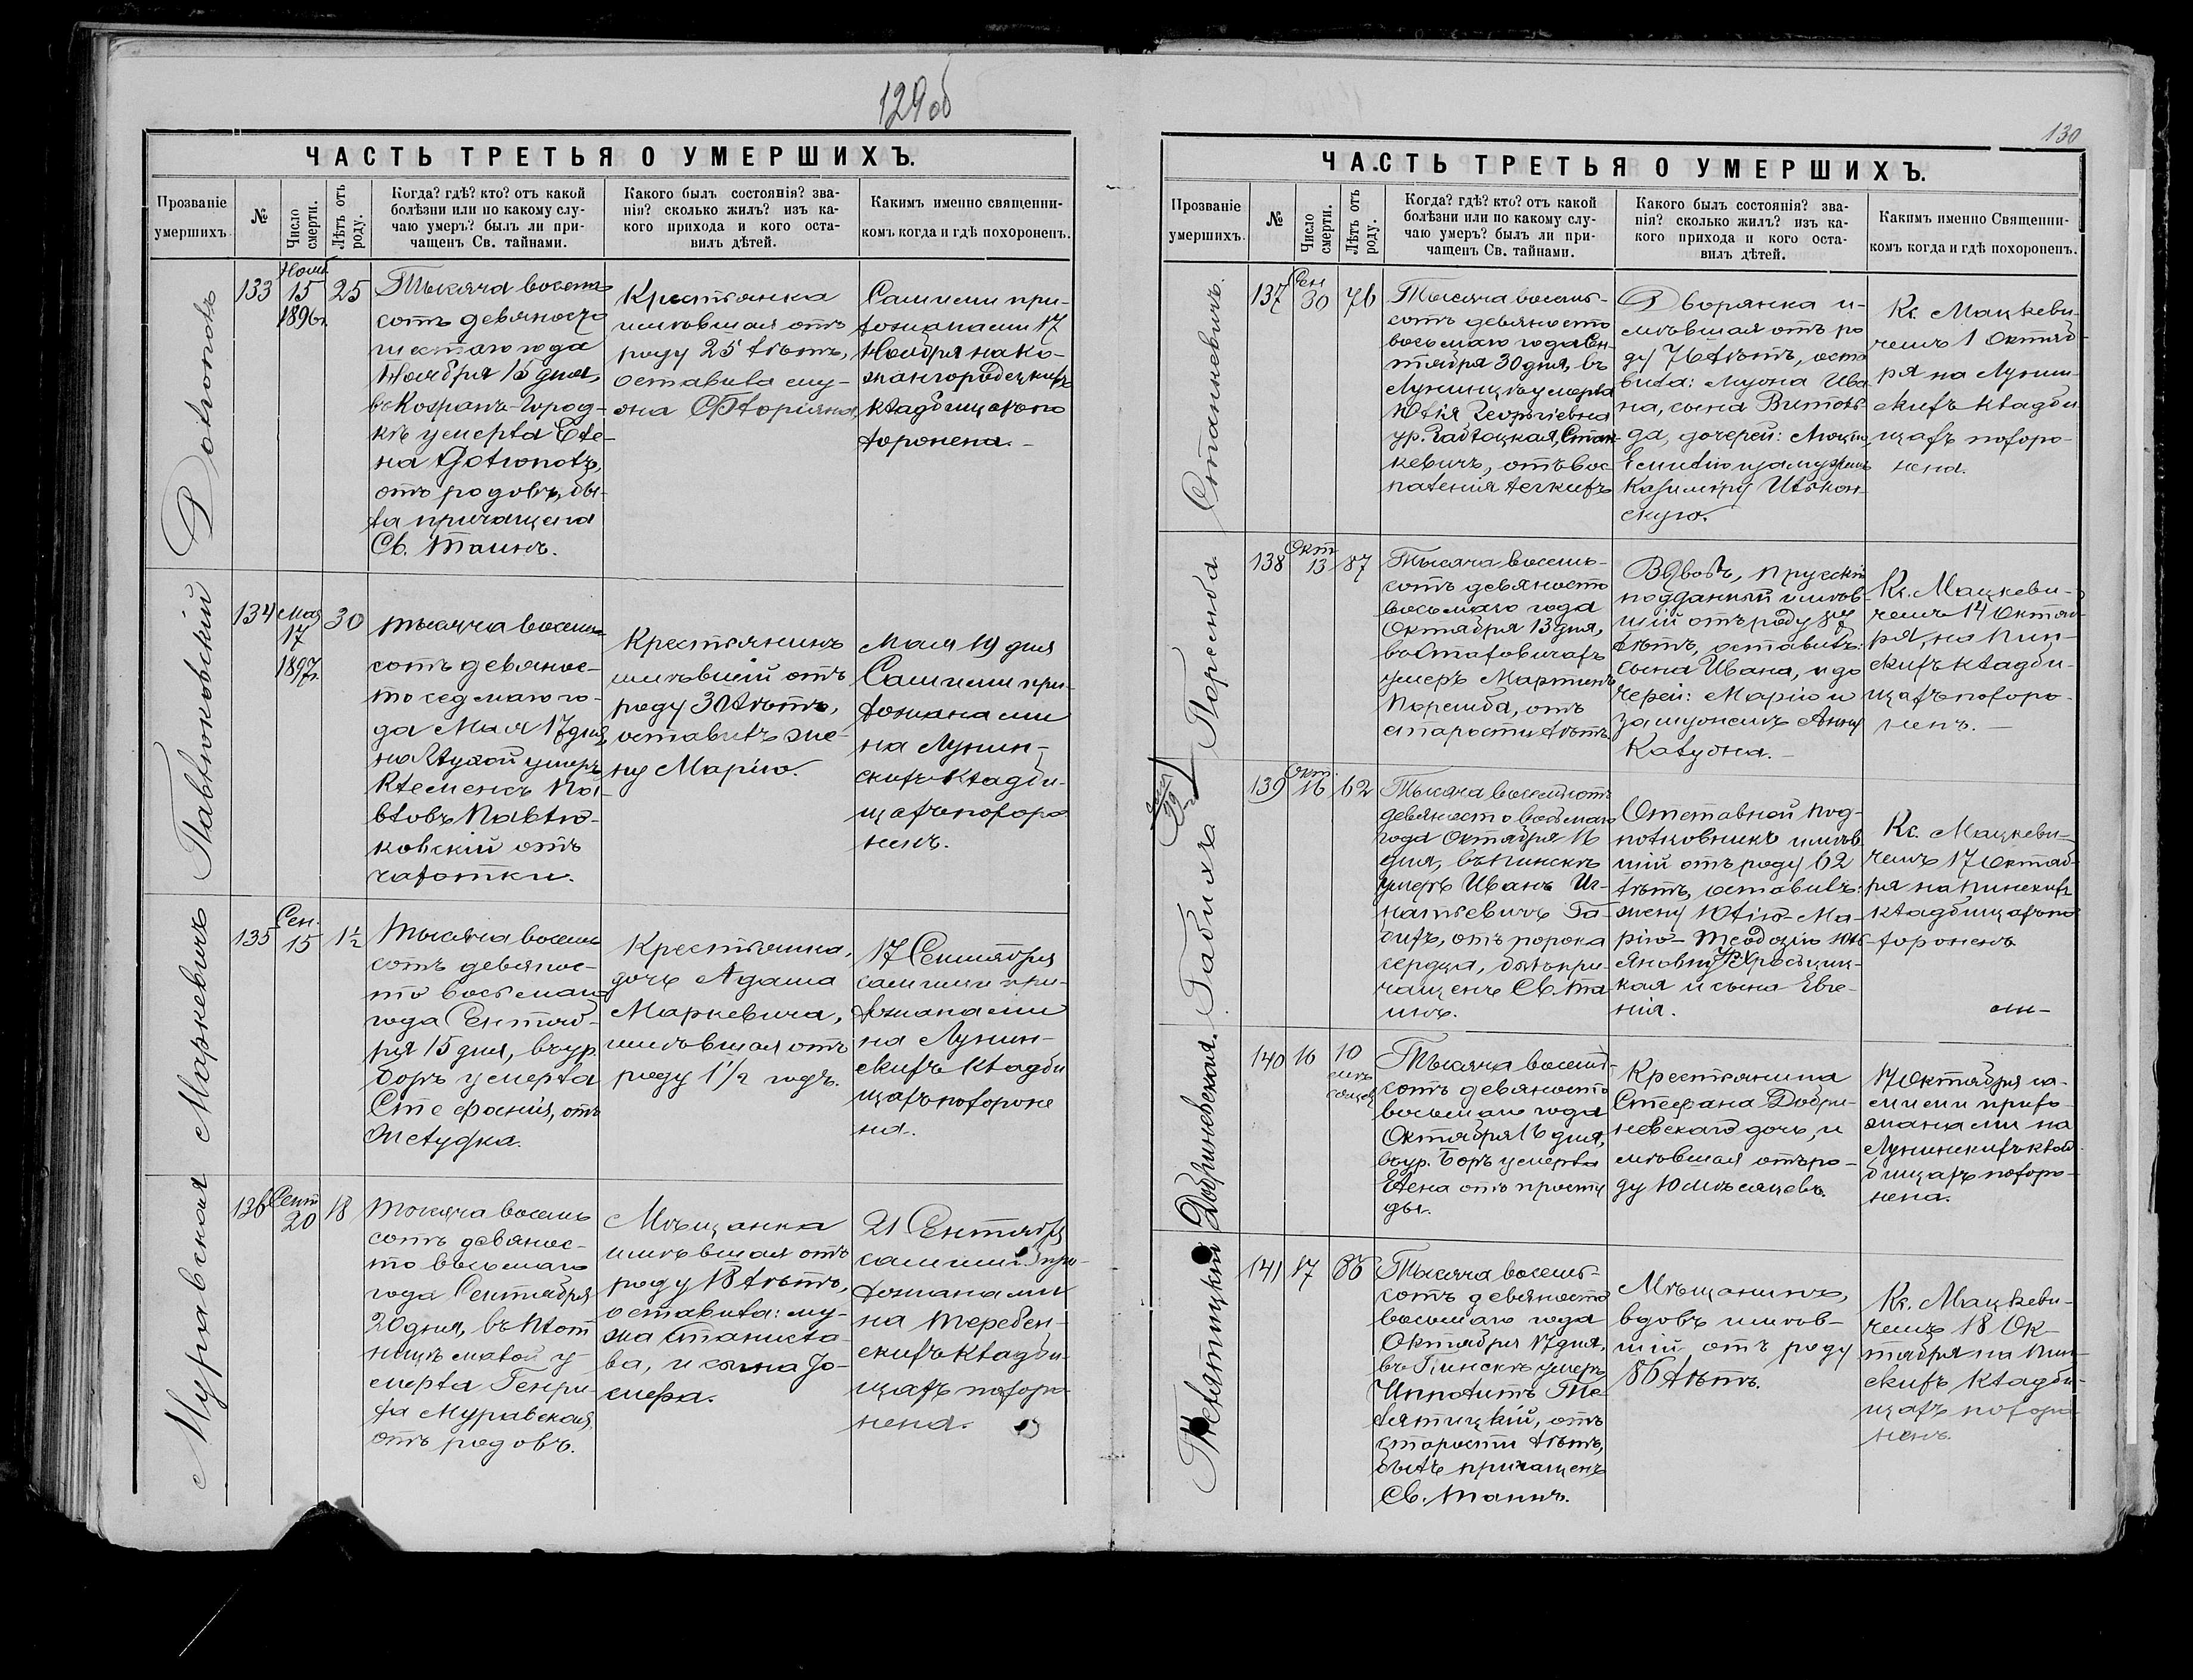 129 об
ЧАСТЬ ТРЕТЬЯ О УМЕРШИХЪ.
Прозваніе умершихъ.
№
Число смерти.
Лѣтъ отъ роду.
Когда? гдѣ? кто? отъ какой
болѣзни или по какому слу-
чаю умеръ? былъ ли при-
чащенъ Св. тайнами.
Какого былъ состоянія? зва-
нія? сколько жилъ? изъ ка-
кого прихода и кого оста-
вилъ дѣтей.
Какимъ именно священни-
комъ когда и гдѣ похороненъ.
133
15
1896г.
25
Тысяча восемь
сотъ девяносто
шестаго года
Ноября 15 дня,
въ Кожанъ-Город-
кѣ умерла Еле-
на
отъ родовъ, бы-
ла причащена
Св. Таинъ.
Крестьянка
имѣвшая отъ
роду 25 лѣтъ,
оставила му-
жа Флоріяна,
Самими при-
хожанами 17
Ноября на Ко-
жангородецкихъ
кладбищахъ по
хоронена. -
Павлюковскій
134
Мая
17
1897г.
30
Тысяча восемь
сотъ девянос-
то седмаго го-
да Мая 17 дня,
умеръ
Клеменсъ Па-
вловъ Павлю-
ковскій отъ
чахотки.
Крестьянинъ
имѣвшій отъ
роду 30 лѣтъ,
оставилъ же-
ну Марію.
Мая 19 дня
Самими при-
хожанами
на Лунин-
скихъ кладби-
щахъ похоро
ненъ.
Маркевичъ
135
Сен.
15
1½
Тысяча восемь
сотъ девянос-
то восьмаго
года Сентяб-
ря 15 дня, въ ур.
Боръ умерла
Стефанія, отъ
желудка.
Крестьянка,
дочь Адама
Маркевича,
имѣвшая отъ
роду 1 1/2 годъ.
17 Сентября
самими при-
хожанами
на Лунин-
скихъ кладби
щахъ похороне
на.
Муравская
136
Сент
20
18
Тысяча восемь
сотъ девянос-
то восьмаго
года Сентября
20 дня, въ Плот
ницѣ малой у-
мерла Генри-
ха Муравская,
отъ родовъ.
Мѣщанка
имѣвшая отъ
роду 18 лѣтъ,
оставила: му-
жа Станисла-
ва, и сына Іо-
сифа.
21 Сентября
самими при-
хожанами
на Теребен-
скихъ кладби-
щахъ похоро
нена.
130
ЧАСТЬ ТРЕТЬЯ О УМЕРШИХЪ.
Прозваніе умершихъ.
№
Число смерти.
Лѣтъ отъ роду.
Когда? гдѣ? кто? отъ какой
болѣзни или по какому слу-
чаю умеръ? былъ ли при-
чащенъ Св. тайнами.
Какого былъ состоянія? зва-
нія? сколько жилъ? изъ ка-
кого прихода и кого оста-
вилъ дѣтей.
Какимъ именно Священни-
комъ когда и гдѣ похороненъ.
Станкевичъ.
137
Сен
30
76
Тысяча восемь-
сотъ девяносто
восьмаго года Сен-
тября 30 дня, въ
Лунинцѣ умерла
Юлія Георгіевна
ур. Станк-
кевичъ, отъ вос
паленія легкихъ
Дворянка и-
мѣвшая отъ ро
ду 76 лѣтъ, оста
вила: мужа Ива
на, сына Витоль
да, дочерей:
Емилію замужемъ
Казиміру
скую.
Кс. Мацкеви-
чемъ 1 Октяб-
ря на Лунин-
скихъ кладби
щахъ похоро-
нена.
Поремба
138
Окт
13
87
Тысяча восемь-
сотъ девяносто
восьмаго года
Октября 13 дня,
въ Стаховичахъ
умеръ Мартинъ
Поремба, отъ
старости лѣтъ
Вдовъ, прускій
подданный имѣв-
шій отъ роду 87
лѣтъ, оставилъ:
сына Ивана, и до
черей: Марію и
замужемъ Анну
Калужна. -
Кс. Мацкеви-
чемъ 14 Октяб-
ря, на Пин-
скихъ кладби-
щахъ похоро-
ненъ. -
Габихъ
139
Окт.
16
62
Тысяча восемьсотъ
девяносто восьмаго
года Октября 16
дня, въ Пинскѣ
умеръ Иванъ Иг-
натьевичъ Га-
бихъ, отъ порока
сердца, былъ при
чащенъ Св. Та
инъ.
Отставной под-
полковникъ имѣв
шій отъ роду 62
лѣтъ, оставилъ:
жену Юлію-Ма-
рію-Теодозію
кая и сына Евге-
нія.
Кс. Мацкеви-
чемъ 17 Октяб-
ря на Пинскихъ
кладбищахъ по
хороненъ
Добриневская.
140
16
10
мѣ
сяцевъ
Тысяча восемь-
сотъ девяносто
восьмаго года
Октября 16 дня,
въ ур. Боръ умерла
Елена отъ просту
ды.
Крестьянина
Стефана Добри-
невскаго дочь, и
мѣвшая отъ ро-
ду 10 мѣсяцевъ.
17 Октября са-
мими прихо-
жанами на
Лунинскихъ клад
бищахъ похоро-
нена.
Телятицкій
141
17
86
Тысяча восемь-
сотъ девяносто
восьмаго года
Октября 17 дня,
въ Пинскѣ умеръ
Ипполитъ Те-
лятицкій, отъ
старости лѣтъ,
былъ причащенъ
Св. Таинъ.
Мѣщанинъ,
вдовъ имѣв-
шій отъ роду
86 лѣтъ.
Кс. Мацкеви-
чемъ 18 Ок-
тября на Пин-
скихъ кладби-
щахъ похоро
ненъ.